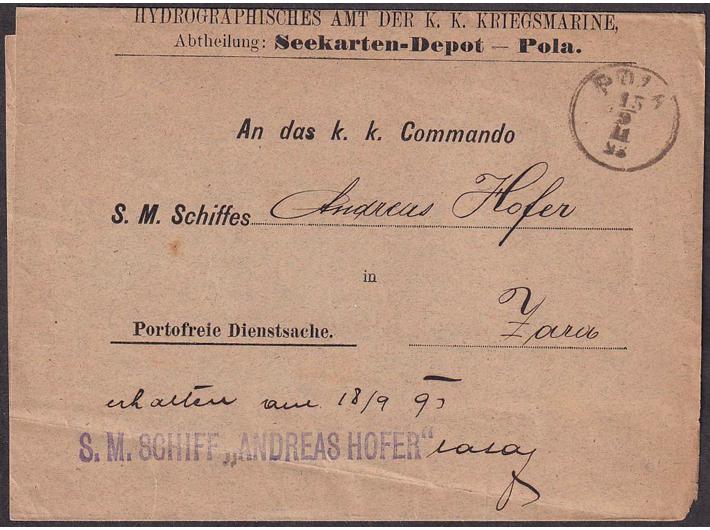 HYDROGRAPHISCHES AMT DER K. K. KRIEGSMARINE,
Abtheilung: Seekarten-Depot — Pola.
POLA
15
9
An das k. k. Commando
S. M. Schiffes Andreas Hofer
in
Portofreie Dienstsache. Zara
erhalten am 18/9 93
S. M. SCHIFF „ANDREAS HOFER“